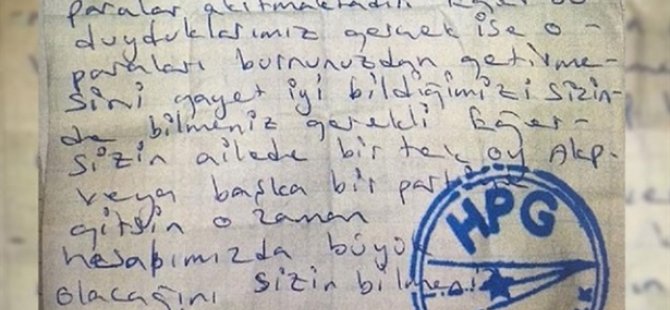 paralar akıtmaktadır Eğer bu
duyduklarımız gerçek ise o-
paraları burnunuzdan getirme-
sini gayet iyi bildiğimizi sizin-
de bilmeniz gerekli Eğer-
sizin ailede bir tek oy Akp-
veya başka bir
gitsin o zaman
hesabımızda büyük
olacağını sizin bilmeniz
HPG